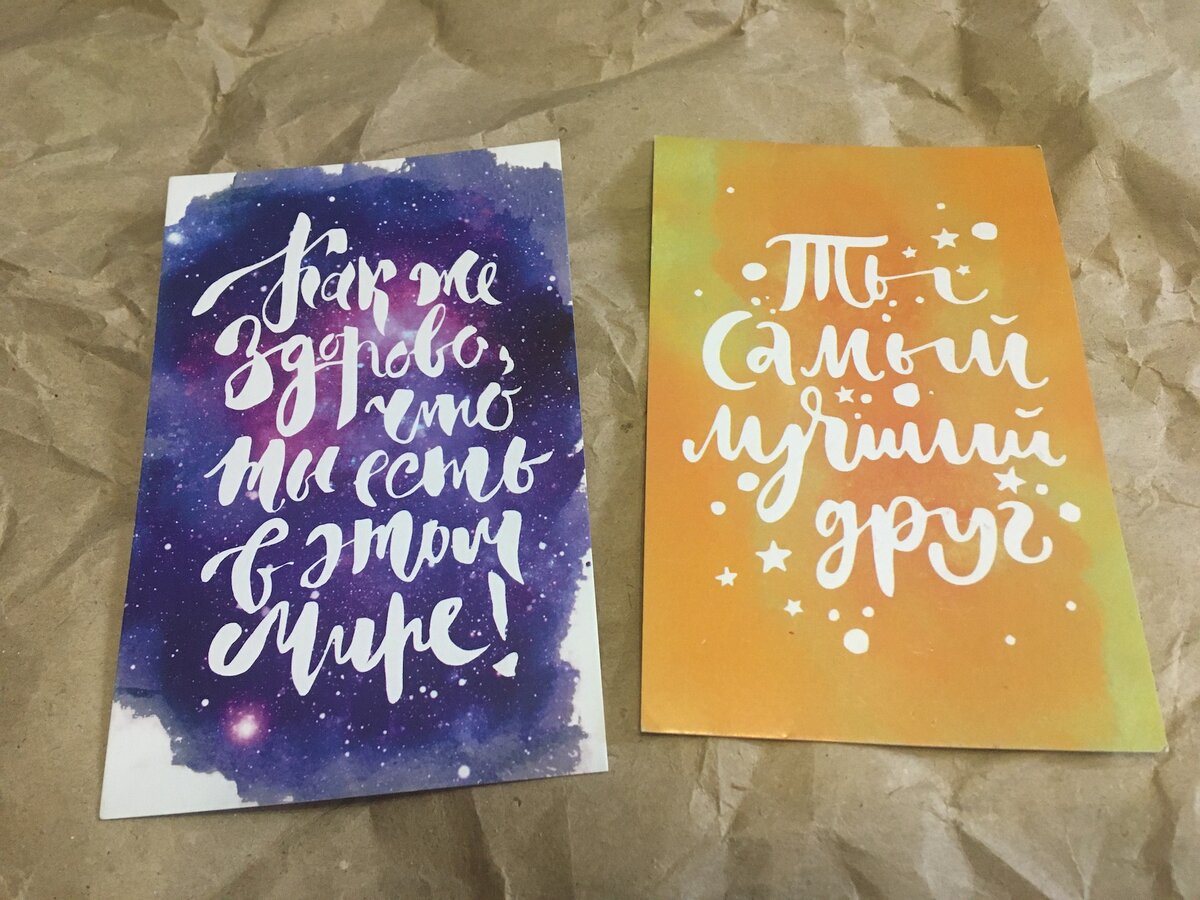 Как же
здорово,
что
ты есть
в этом
мире!
Ты
самый
лучший
друг